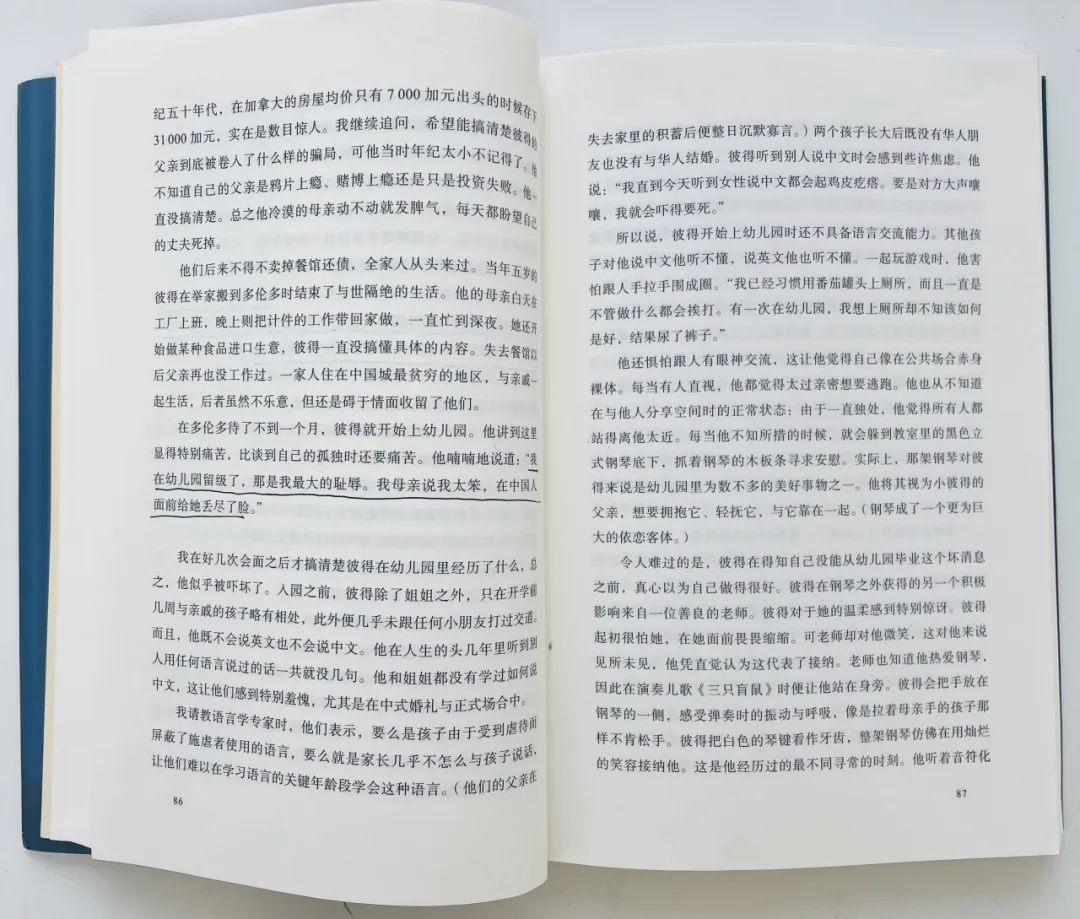 纪五十年代，在加拿大的房屋均价只有 7 000 加元出头的时候存下
31 000 加元，实在是数目惊人。我继续追问，希望能搞清楚彼得的
父亲到底被卷入了什么样的骗局，可他当时年纪太小不记得了。他
不知道自己的父亲是鸦片上瘾、赌博上瘾还是只是投资失败。他一
直没搞清楚。总之他冷漠的母亲动不动就发脾气，每天都盼望自己
的丈夫死掉。
他们后来不得不卖掉餐馆还债，全家人从头来过。当年五岁的
彼得在举家搬到多伦多时结束了与世隔绝的生活。他的母亲白天在
工厂上班，晚上则把计件的工作带回家做，一直忙到深夜。她还开
始做某种食品进口生意，彼得一直没搞懂具体的内容。失去餐馆以
后父亲再也没工作过。一家人住在中国城最贫穷的地区，与亲戚一
起生活，后者虽然不乐意，但还是碍于情面收留了他们。
在多伦多待了不到一个月，彼得就开始上幼儿园。他讲到这里
显得特别痛苦，比谈到自己的孤独时还要痛苦。他喃喃地说道：“我
在幼儿园留级了，那是我最大的耻辱。我母亲说我太笨，在中国人
面前给她丢尽了脸。”
我在好几次会面之后才搞清楚彼得在幼儿园里经历了什么，总
之，他似乎被吓坏了。入园之前，彼得除了姐姐之外，只在开学前
几周与亲戚的孩子略有相处，此外便几乎未跟任何小朋友打过交道。
而且，他既不会说英文也不会说中文。他在人生的头几年里听到别
人用任何语言说过的话一共就没几句。他和姐姐都没有学过如何说
中文，这让他们感到特别羞愧，尤其是在中式婚礼与正式场合中。
我请教语言学专家时，他们表示，要么是孩子由于受到虐待而
屏蔽了施虐者使用的语言，要么就是家长几乎不怎么与孩子说话，
让他们难以在学习语言的关键年龄段学会这种语言。（他们的父亲在
86
失去家里的积蓄后便整日沉默寡言。）两个孩子长大后既没有华人朋
友也没有与华人结婚。彼得听到别人说中文时会感到些许焦虑。他
说：“我直到今天听到女性说中文都会起鸡皮疙瘩。要是对方大声嚷
嚷，我就会吓得要死。”
所以说，彼得开始上幼儿园时还不具备语言交流能力。其他孩
子对他说中文他听不懂，说英文他也听不懂。一起玩游戏时，他害
怕跟人手拉手围成圈。“我已经习惯用番茄罐头上厕所，而且一直是
不管做什么都会挨打。有一次在幼儿园，我想上厕所却不知该如何
是好，结果尿了裤子。”
他还惧怕跟人有眼神交流，这让他觉得自己像在公共场合赤身
裸体。每当有人直视，他都觉得太过亲密想要逃跑。他也从不知道
在与他人分享空间时的正常状态：由于一直独处，他觉得所有人都
站得离他太近。每当他不知所措的时候，就会躲到教室里的黑色立
式钢琴底下，抓着钢琴的木板条寻求安慰。实际上，那架钢琴对彼
得来说是幼儿园里为数不多的美好事物之一。他将其视为小彼得的
父亲，想要拥抱它、轻抚它，与它靠在一起。（钢琴成了一个更为巨
大的依恋客体。）
令人难过的是，彼得在得知自己没能从幼儿园毕业这个坏消息
之前，真心以为自己做得很好。彼得在钢琴之外获得的另一个积极
影响来自一位善良的老师。彼得对于她的温柔感到特别惊讶。彼得
起初很怕她，在她面前畏畏缩缩。可老师却对他微笑，这对他来说
见所未见，他凭直觉认为这代表了接纳。老师也知道他热爱钢琴，
因此在演奏儿歌《三只盲鼠》时便让他站在身旁。彼得会把手放在
钢琴的一侧，感受弹奏时的振动与呼吸，像是拉着母亲手的孩子那
样不肯松手。彼得把白色的琴键看作牙齿，整架钢琴仿佛在用灿烂
的笑容接纳他。这是他经历过的最不同寻常的时刻。他听着音符化
87